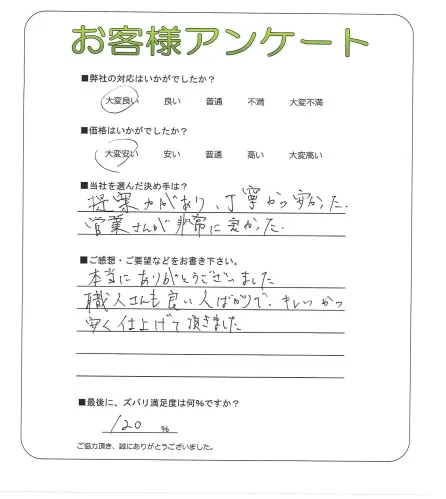 お客様アンケート
■弊社の対応はいかがでしたか?
大変良い 良い 普通 不満 大変不満
■価格はいかがでしたか?
大変安い 安い 普通 高い 大変高い
■当社を選んだ決め手は?
提案力があり、丁寧かつ安かった。
営業さんが非常に良かった。
■ご感想・ご要望などをお書き下さい。
本当にありがとうございました
職人さんも良い人ばかりで、キレイかつ
安く仕上げて頂きました
■最後に、ズバリ満足度は何%ですか?
120 %
ご協力頂き、誠にありがとうございました。